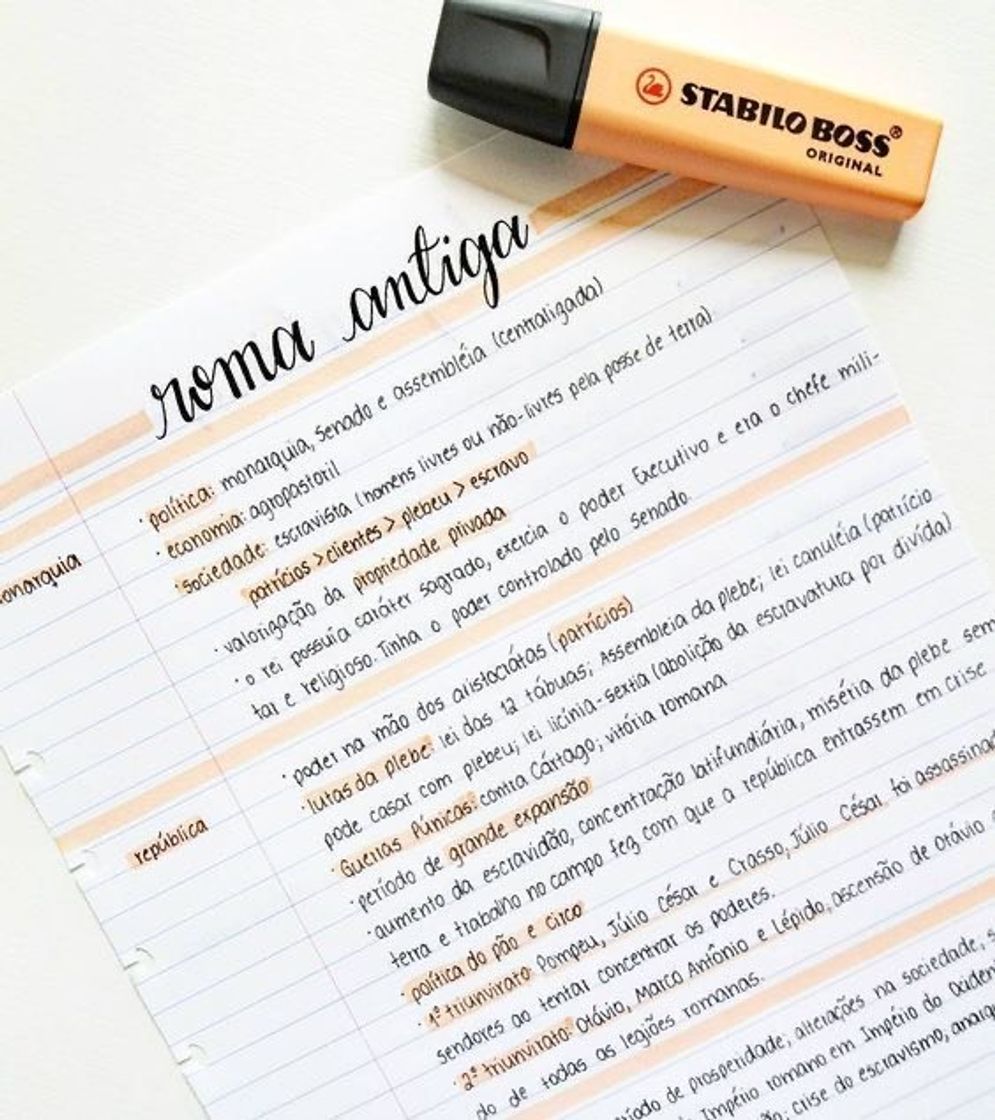 STABILO BOSS®
ORIGINAL
roma antiga
· política: monarquia, Senado e assembléia (centralizada)
· economia: agropastoril
· sociedade: escravista (homens livres ou não-livres pela posse de terra)
patrícios > clientes > plebeu > escravo
· valorização da propriedade privada
onarquia
· o rei possuía caráter sagrado, exercia o poder Executivo e era o chefe mili-
tar e religioso. Tinha o poder controlado pelo Senado.
· poder na mão dos aristocrátas (patrícios)
· lutas da plebe: lei das 12 tábuas; Assembleia da plebe; lei canuléia (patrício
pode casar com plebeu; lei licínia-sextia (abolição da escravatura por divída)
· Guerras Púnicas: contra Cártago; vitória romana
república
· período de grande expansão
· aumento da escravidão, concentração latifundiária, miséria da plebe sem
terra e trabalho no campo fez com que a república entrassem em crise
· política do pão e circo
· 1º triunvirato: Pompeu, Júlio César e Crasso, Júlio César foi assassinad
sendores ao tentar concentrar os poderes.
· 2º triunvirato: Otávio, Marco Antônio e Lépido, ascensão de Otávio
do de todas as legiões romanas.
ríodo de prosperidade; alterações na sociedade, s
Império romano em Império do Ociden
crise do escravismo, anarq